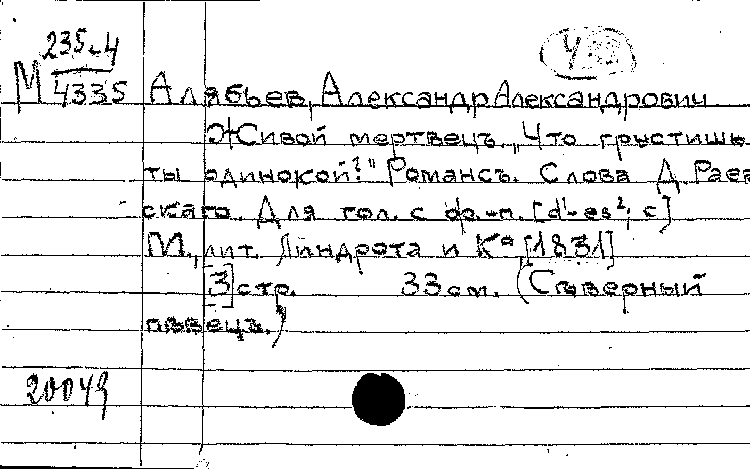 235-4
М 4335
Алябьев, Александр Александрович
Живой мертвецъ „Что грустишь
ты одинокой?" Романсъ. Слова Д. Раев-
скаго. Для гол. с ф.-п. [d¹-es²; c]
М., лит. Линдрота и Кº [1831]
[3] стр. 33 см. (Съверный
пѣвецъ.)
20049